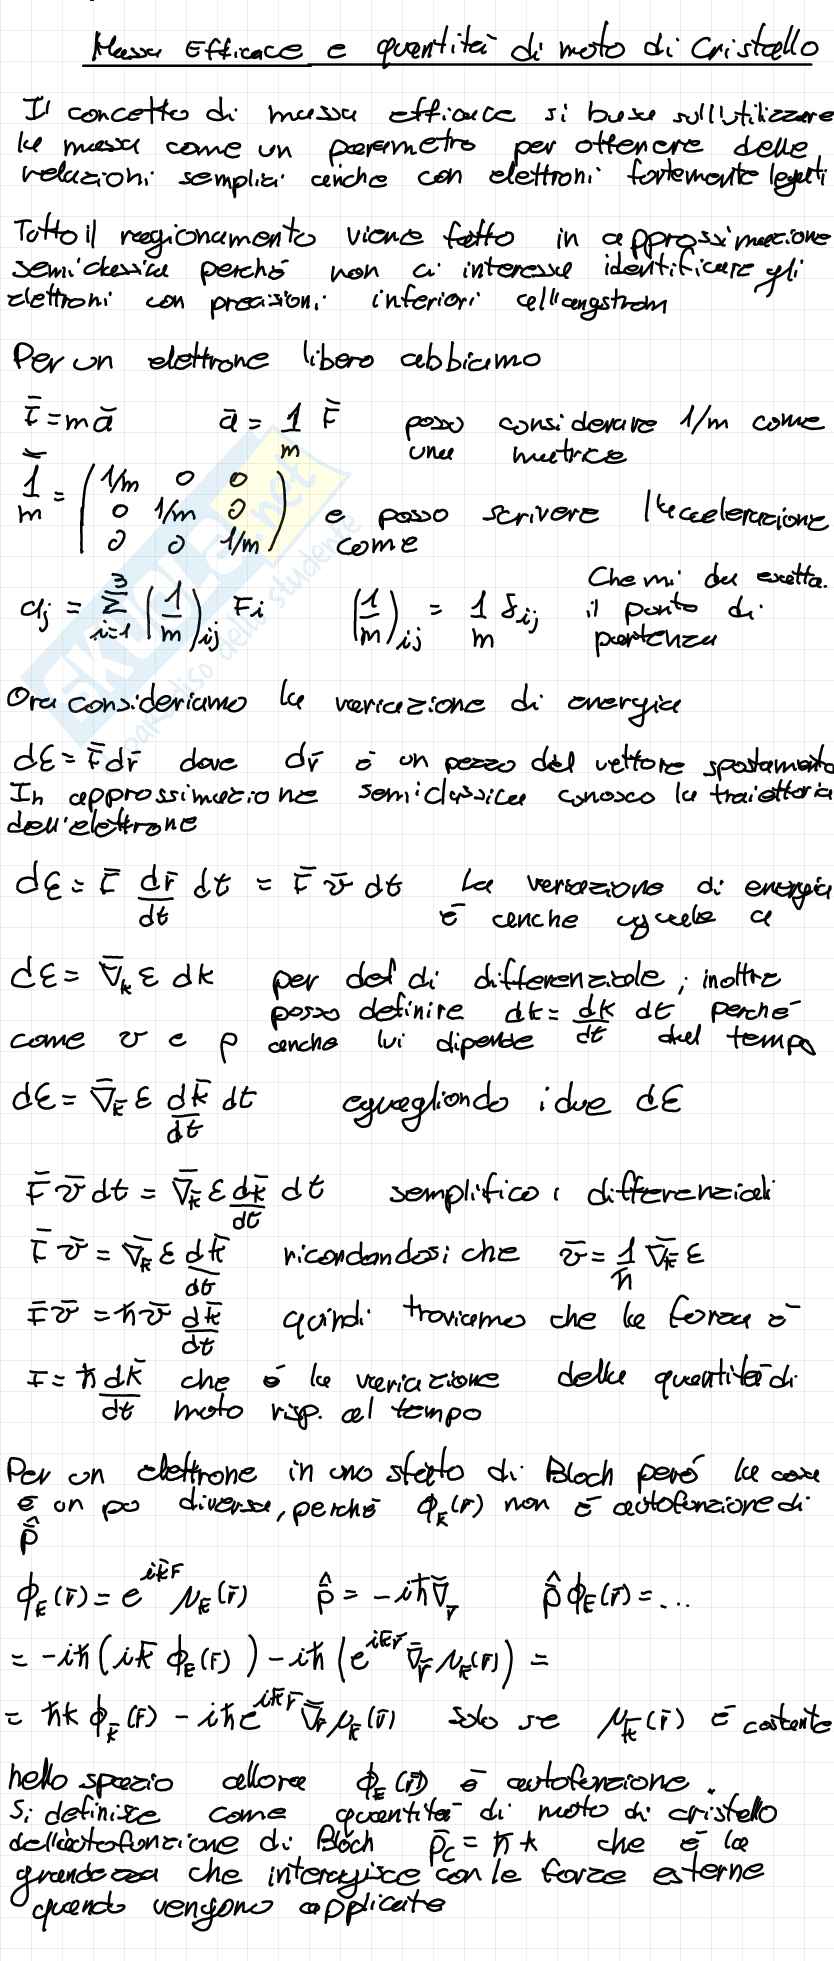 Massa Efficace e quantità di moto di Cristallo
Il concetto di massa efficace si basa sull'utilizzare
la massa come un parametro per ottenere delle
relazioni semplici anche con elettroni fortemente legati
Tutto il ragionamento viene fatto in approssimazione
semiclassica perché non ci interessa identificare gli
elettroni con precisioni inferiori all'angstrom
Per un elettrone libero abbiamo
F̄ = m ā    ā = 1/m F̄    posso considerare 1/m come
una matrice
1/m = ( 1/m 0 0
0 1/m 0    e posso scrivere l'accelerazione
0 0 1/m )    come
aj = Σ³ᵢ₌₁ (1/m)ij Fi    (1/m)ij = 1/m δij    Che mi da esatta.
il punto di
partenza
Ora consideriamo la variazione di energia
dε = F̄ dr̄ dove dr̄ è un pezzo del vettore spostamento
In approssimazione semiclassica conosco la traiettoria
dell'elettrone
dε = F̄ dr̄/dt dt = F̄ v̄ dt    La variazione di energia
è anche uguale a
dε = ∇̄k ε dk    per def di differenziale; inoltre
posso definire dk = dk/dt dt perché
come v e p anche lui dipende dal tempo
dε = ∇̄k̄ ε dk̄/dt dt    eguagliando i due dε
F̄ v̄ dt = ∇̄k̄ ε dk̄/dt dt    semplifico i differenziali
F̄ v̄ = ∇̄k̄ ε dk̄/dt    ricordandosi che v̄ = 1/ħ ∇̄k̄ ε
F̄ v̄ = ħ v̄ dk̄/dt    quindi troviamo che la forza è
F = ħ dk̄/dt    che è la variazione della quantità di
moto risp. al tempo
Per un elettrone in uno stato di Bloch però la cosa
è un po diversa, perché ϕk̄(r̄) non è autofunzione di
p̄̂
ϕk̄(r̄) = e^{ik̄r̄} μk̄(r̄)    p̄̂ = -iħ∇̄r    p̄̂ ϕk̄(r̄) = ...
= -iħ (ik̄ ϕk̄(r̄)) - iħ (e^{ik̄r̄} ∇̄r̄ μk̄(r̄)) =
= ħk ϕk̄(r̄) - iħ e^{ik̄r̄} ∇̄r̄ μk̄(r̄)    solo se μk̄(r̄) è costante
nello spazio allora ϕk̄(r̄) è autofunzione.
Si definisce come quantità di moto di cristallo
dell'autofunzione di Bloch p̄c = ħk che è la
grandezza che interagisce con le forze esterne
quando vengono applicate
SKUOLA.net
paradiso dello studente